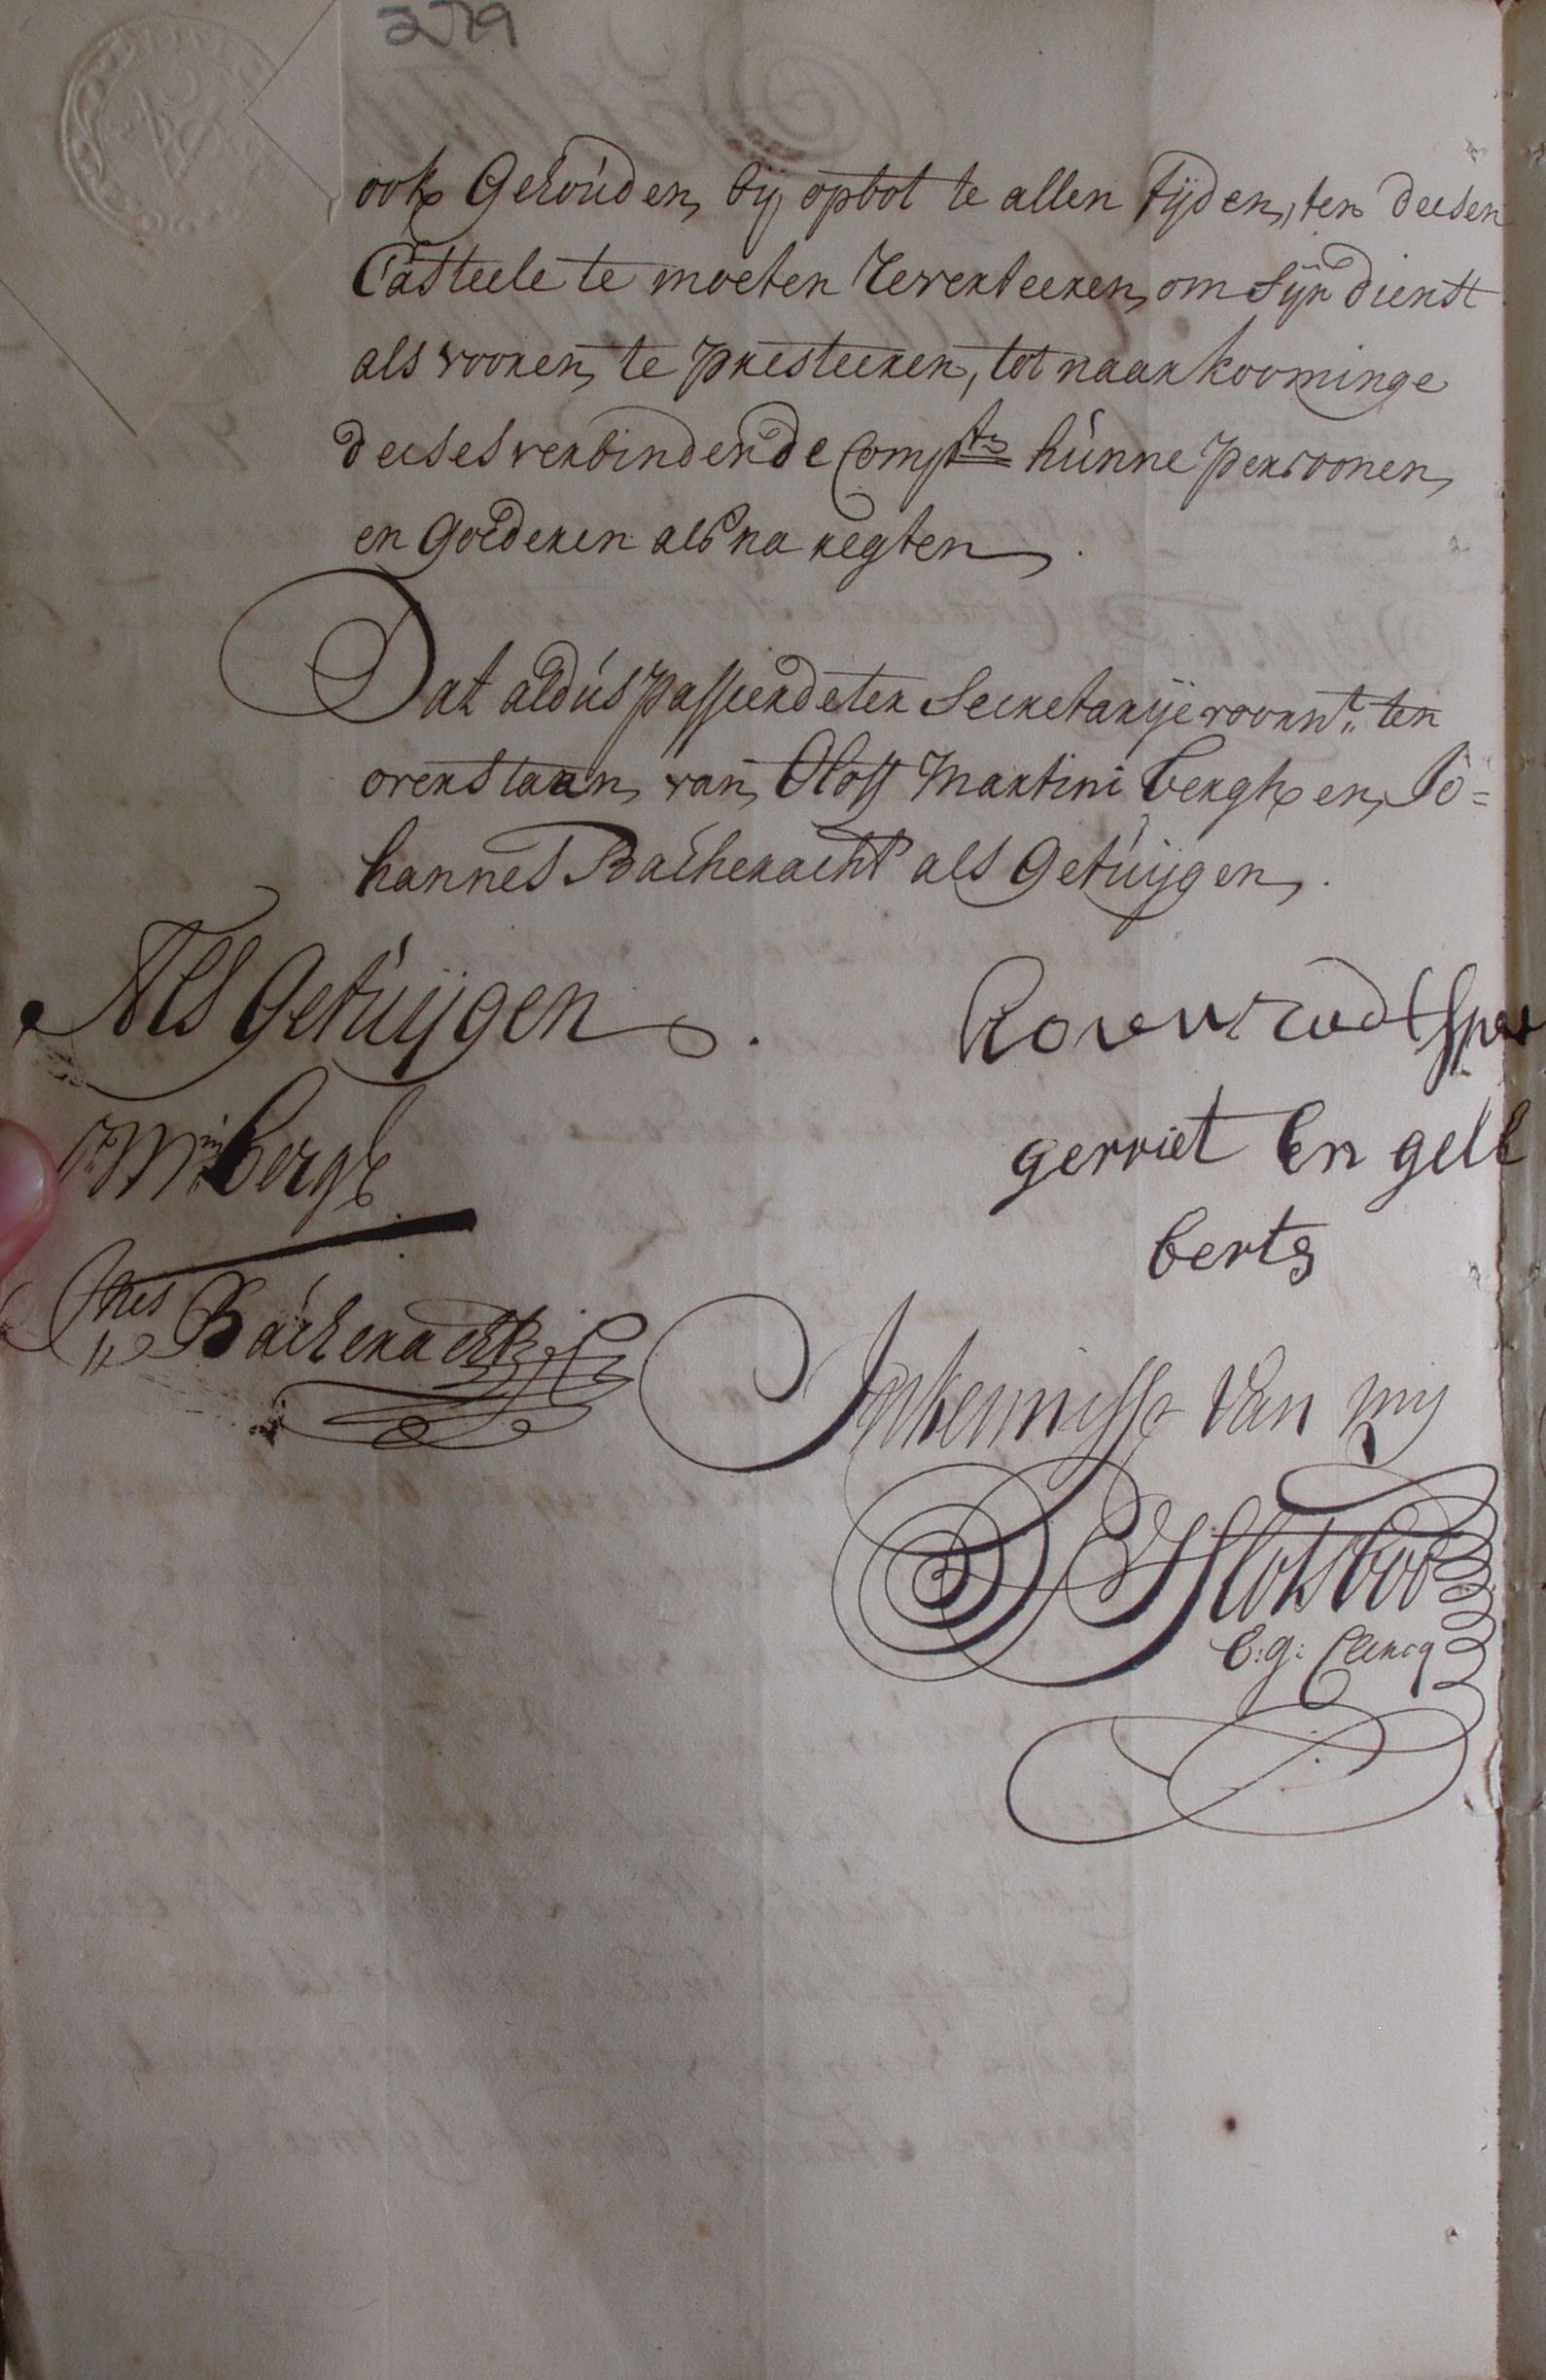 279
ook Gehouden, bij opbot te allen tijden, ten deesen
Casteele te moeten Reverteeren, om sijn dienst
als vooren, te presteeren, tot naarkoominge
deeses verbindende Compten hunne persoonen,
en Goederen als na regten.
Dat aldus passeerde ter Secretarije voornt. ten
overstaan, van, Oloff Martini Bergh en, Jo=
hannes Bacheracht als Getuijgen.
Als Getuijgen.
Mni Bergh
Jhes Bacheracht
gerriet En gell
berts
In kennisse van mij
D
b: g: Clercq